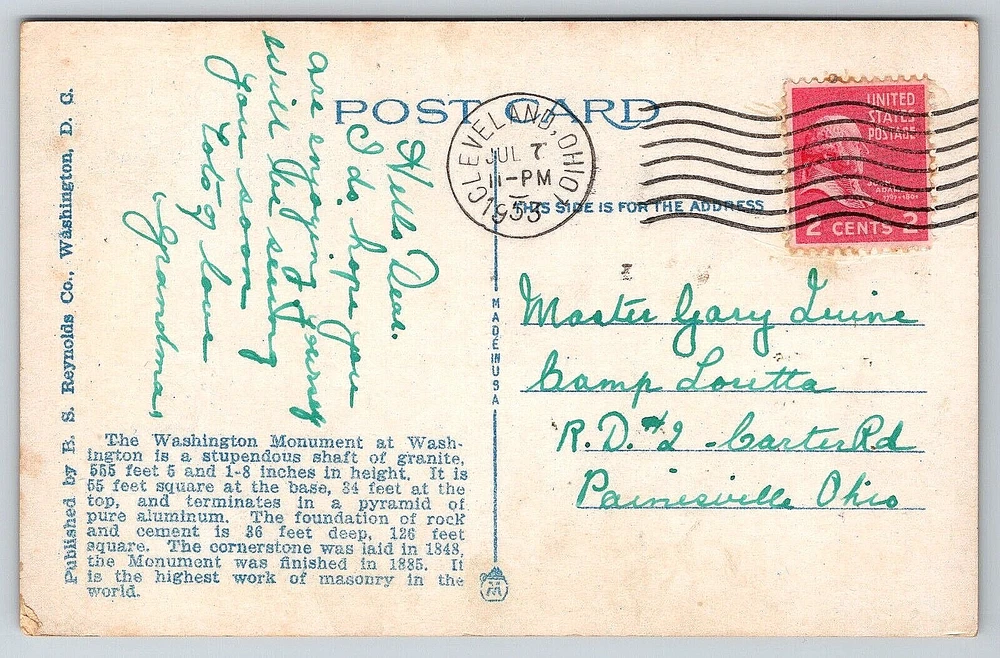 POST CARD
CLEVELAND, OHIO
JUL 7
11-PM
1953
UNITED
STATES
POSTAGE
JOHN
ADAMS
1797-1801
2 CENTS 2
THIS SIDE IS FOR THE ADDRESS
Hello Dear.
I do hope you
are enjoying yourself
will be seeing
you soon
Lots love
Grandma
Master Gary
Camp Loretta
R.D. #2 - Carter Rd
Painesville Ohio
MADE IN USA
Published by B. S. Reynolds Co., Washington, D. C.
The Washington Monument at Wash-
ington is a stupendous shaft of granite,
555 feet 5 and 1-8 inches in height. It is
55 feet square at the base, 34 feet at the
top, and terminates in a pyramid of
pure aluminum. The foundation of rock
and cement is 36 feet deep, 126 feet
square. The cornerstone was laid in 1848,
the Monument was finished in 1885. It
is the highest work of masonry in the
world.